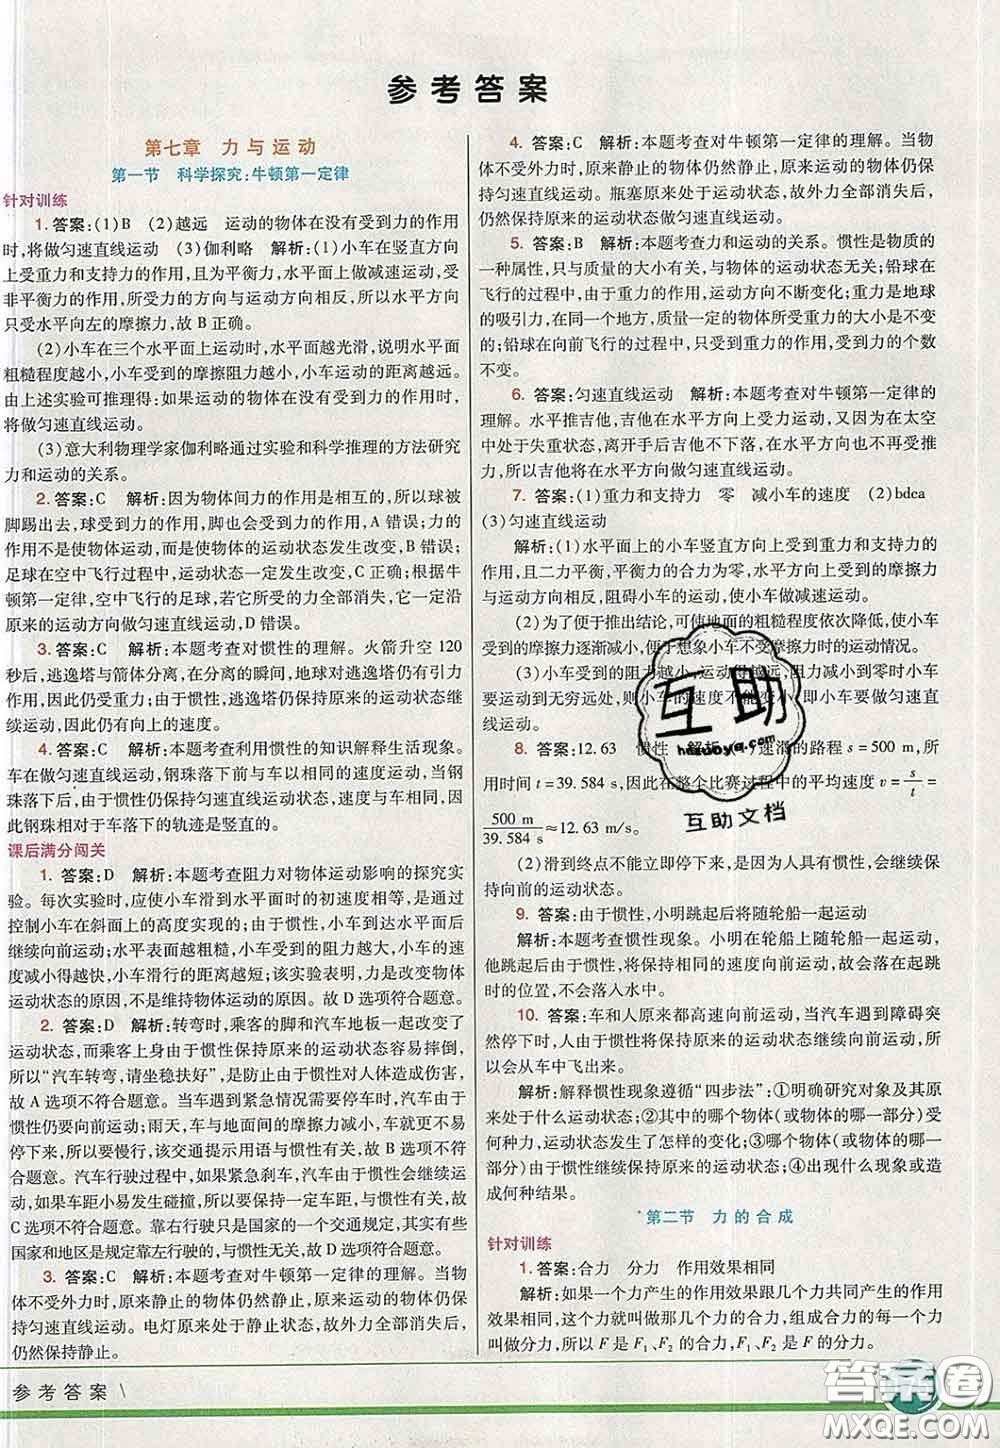 参考答案
第七章 力与运动
第一节 科学探究:牛顿第一定律
针对训练
1. 答案:(1)B (2)越远 运动的物体在没有受到力的作用
时,将做匀速直线运动 (3)伽利略 解析:(1)小车在竖直方向
上受重力和支持力的作用,且为平衡力,水平面上做减速运动,受
非平衡力的作用,所受力的方向与运动方向相反,所以水平方向
只受水平向左的摩擦力,故 B 正确。
(2)小车在三个水平面上运动时,水平面越光滑,说明水平面
粗糙程度越小,小车受到的摩擦阻力越小,小车运动的距离越远。
由上述实验可推理得:如果运动的物体在没有受到力的作用时,
将做匀速直线运动。
(3)意大利物理学家伽利略通过实验和科学推理的方法研究
力和运动的关系。
2. 答案:C 解析:因为物体间力的作用是相互的,所以球被
脚踢出去,球受到力的作用,脚也会受到力的作用,A 错误;力的
作用不是使物体运动,而是使物体的运动状态发生改变,B 错误;
足球在空中飞行过程中,运动状态一定发生改变,C 正确;根据牛
顿第一定律,空中飞行的足球,若所受的力全部消失,它一定沿
原来的运动方向做匀速直线运动,D 错误。
3. 答案:C 解析:本题考查对惯性的理解。火箭升空 120
秒后,逃逸塔与箭体分离,在分离的瞬间,地球对逃逸塔仍有引力
作用,所以仍受重力;由于惯性,逃逸塔仍保持原来的运动状态继
续运动,因此仍有向上的速度。
4. 答案:C 解析:本题考查利用惯性的知识解释生活现象。
车在做匀速直线运动,钢珠落下前与车以相同的速度运动,当钢
珠落下时,由于惯性仍保持匀速直线运动状态,速度与车相同,因
此钢珠相对于车落下的轨迹是竖直的。
课后满分闯关
1. 答案:D 解析:本题考查阻力对物体运动影响的探究实
验。每次实验时,应使小车滑到水平面时的初速度相等,是通过
控制小车在斜面上的高度实现的;由于惯性,小车到达水平面后
继续向前运动;水平表面越粗糙,小车受到的阻力越大,小车的速
度减小得越快,小车滑行的距离越短;该实验表明,力是改变物体
运动状态的原因,不是维持物体运动的原因。故 D 选项符合题意。
2. 答案:D 解析:转弯时,乘客的脚和汽车地板一起改变了
运动状态,而乘客身体上部由于惯性保持原来的运动状态容易摔倒,
所以“汽车转弯,请坐稳扶好”,是谨防由于惯性对人体造成伤害,
故 A 选项不符合题意。汽车在遇到紧急情况需要刹车时,由于
惯性仍要向前运动;雨天,车与地面间的摩擦力减小,刹车后运动
的距离变长,所以要慢行,该交通提示用语与惯性有关,故 B 选项
不符合题意。汽车行驶过程中,如果紧急刹车,汽车由于惯性继续
运动,如果车距小易发生碰撞,所以要保持一定车距,与惯性有关,故
C 选项不符合题意。靠右行驶只是国家的一个交通规定,有些
国家和地区是靠左行驶的,与惯性无关,故 D 选项符合题意。
3. 答案:C 解析:本题考查对牛顿第一定律的理解。当物
体不受外力时,原来静止的物体仍然静止,原来运动的物体仍保
持匀速直线运动。电灯原来处于静止状态,故外力全部消失后,
仍然保持静止。
4. 答案:C 解析:本题考查对牛顿第一定律的理解。当物
体不受外力时,原来静止的物体仍然静止,原来运动的物体仍保
持匀速直线运动。瓶塞原来处于运动状态,故外力全部消失后,
仍然保持原来的运动状态做匀速直线运动。
5. 答案:B 解析:本题考查力和运动的关系。惯性是物质的
一种属性,只与质量的大小有关,与物体的运动状态无关;铅球在
飞行的过程中,由于重力的作用,运动方向不断变化;重力是地球
的吸引力,在同一个地方,质量一定的物体所受重力的大小是不变
的;铅球在向前飞行的过程中,只受到重力的作用,受到力的个数
不变。
6. 答案:匀速直线运动 解析:本题考查对牛顿第一定律的
理解。水平推吉他,吉他在水平方向上受力运动,又因为在太空
中处于失重状态,离开手后吉他不下落,在水平方向也不再受推
力,所以吉他将在水平方向做匀速直线运动。
7. 答案:(1)重力和支持力 零 减小车的速度 (2)bdca
(3)匀速直线运动
解析:(1)水平面上的小车竖直方向上受到重力和支持力的作
用,且二力平衡,平衡力的合力为零,水平方向上,受到的摩擦力
与运动方向相反,阻碍小车的运动,使小车做减速运动。
(2)为了便于推出结论,可使地面的粗糙程度依次降低,使小车受
的摩擦力逐渐减小,便于想象小车不受摩擦力时的运动情况。
(3)小车受到的阻力越小,运动得越远,阻力减小到零时小车要
运动到无穷远处,则小车的速度不能变小,即小车要做匀速直
线运动。
8. 答案:12.63 惯性 解析:(1)速滑的路程 s＝500 m,所
用时间 t＝39.584 s,因此在整个比赛过程中的平均速度 v＝s/t＝
500 m/39.584 s≈12.63 m/s。
(2)滑到终点不能立即停下来,是因为人具有惯性,会继续保
持向前的运动状态。
9. 答案:由于惯性,小明跳起后将随轮船一起运动
解析:本题考查惯性现象。小明在轮船上随轮船一起运动,
他跳起后由于惯性,将保持相同的速度向前运动,故会落在起跳
时的位置,不会落入水中。
10. 答案:车和人原来都高速向前运动,当汽车遇到障碍突
然停下时,人由于惯性将保持原来的运动状态继续向前运动,所
以会从车中飞出来。
解析:解释惯性现象遵循“四步法”:①明确研究对象及其原
来处于什么运动状态;②其中的哪个物体(或物体的哪一部分)受
何种力,运动状态发生了怎样的变化;③哪个物体(或物体的哪一
部分)由于惯性继续保持原来的运动状态;④出现什么现象或造
成何种结果。
第二节 力的合成
针对训练
1. 答案:合力 分力 作用效果相同
解析:如果一个力产生的作用效果跟几个力共同产生的作用
效果相同,这个力就叫做那几个力的合力,组成合力的每一个力
叫做分力。所以 F 是 F₁、F₂ 的合力,F₁、F₂ 是 F 的分力。
互助
huzuoye.com
互助文档
参考答案 \
答案圈
MXQE.COM